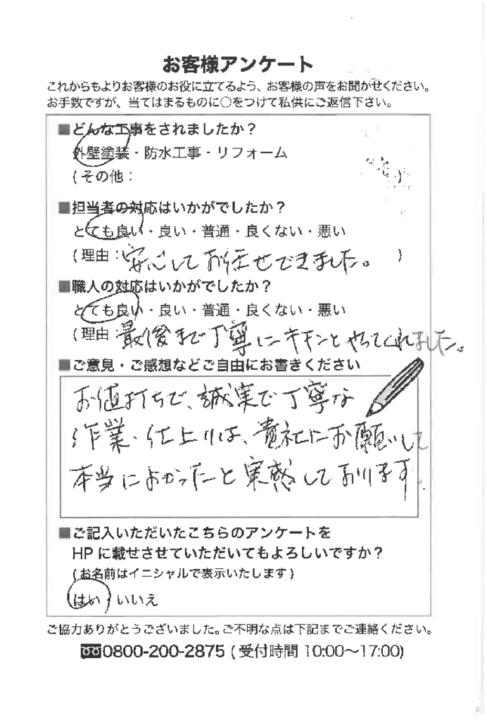 お客様アンケート
これからもよりお客様のお役に立てるよう、お客様の声をお聞かせください。
お手数ですが、当てはまるものに○をつけて私供にご返信下さい。
■どんな工事をされましたか？
外壁塗装・防水工事・リフォーム
(その他：　)
■担当者の対応はいかがでしたか？
とても良い・良い・普通・良くない・悪い
(理由：安心してお任せできました。)
■職人の対応はいかがでしたか？
とても良い・良い・普通・良くない・悪い
(理由 最後まで丁寧にキチンとやってくれました。
■ご意見・ご感想などご自由にお書きください
お値打ちで、誠実で丁寧な
作業・仕上りは、貴社にお願いして
本当によかったと実感しております。
■ご記入いただいたこちらのアンケートを
HPに載せさせていただいてもよろしいですか？
(お名前はイニシャルで表示いたします)
はい・いいえ
ご協力ありがとうございました。ご不明な点は下記までご連絡ください。
0800-200-2875 (受付時間 10:00〜17:00)